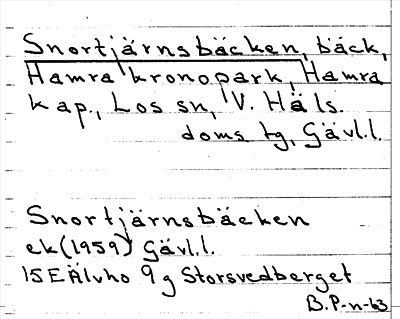 Snortjärnsbäcken, bäck,
Hamra kronopark, Hamra
kap., Los sn, V. Häls.
doms tg, Gävl.l.
Snortjärnsbäcken
ek (1959) Gävl.l.
15E Älvho 9g Storsvedberget
B.P-n-63